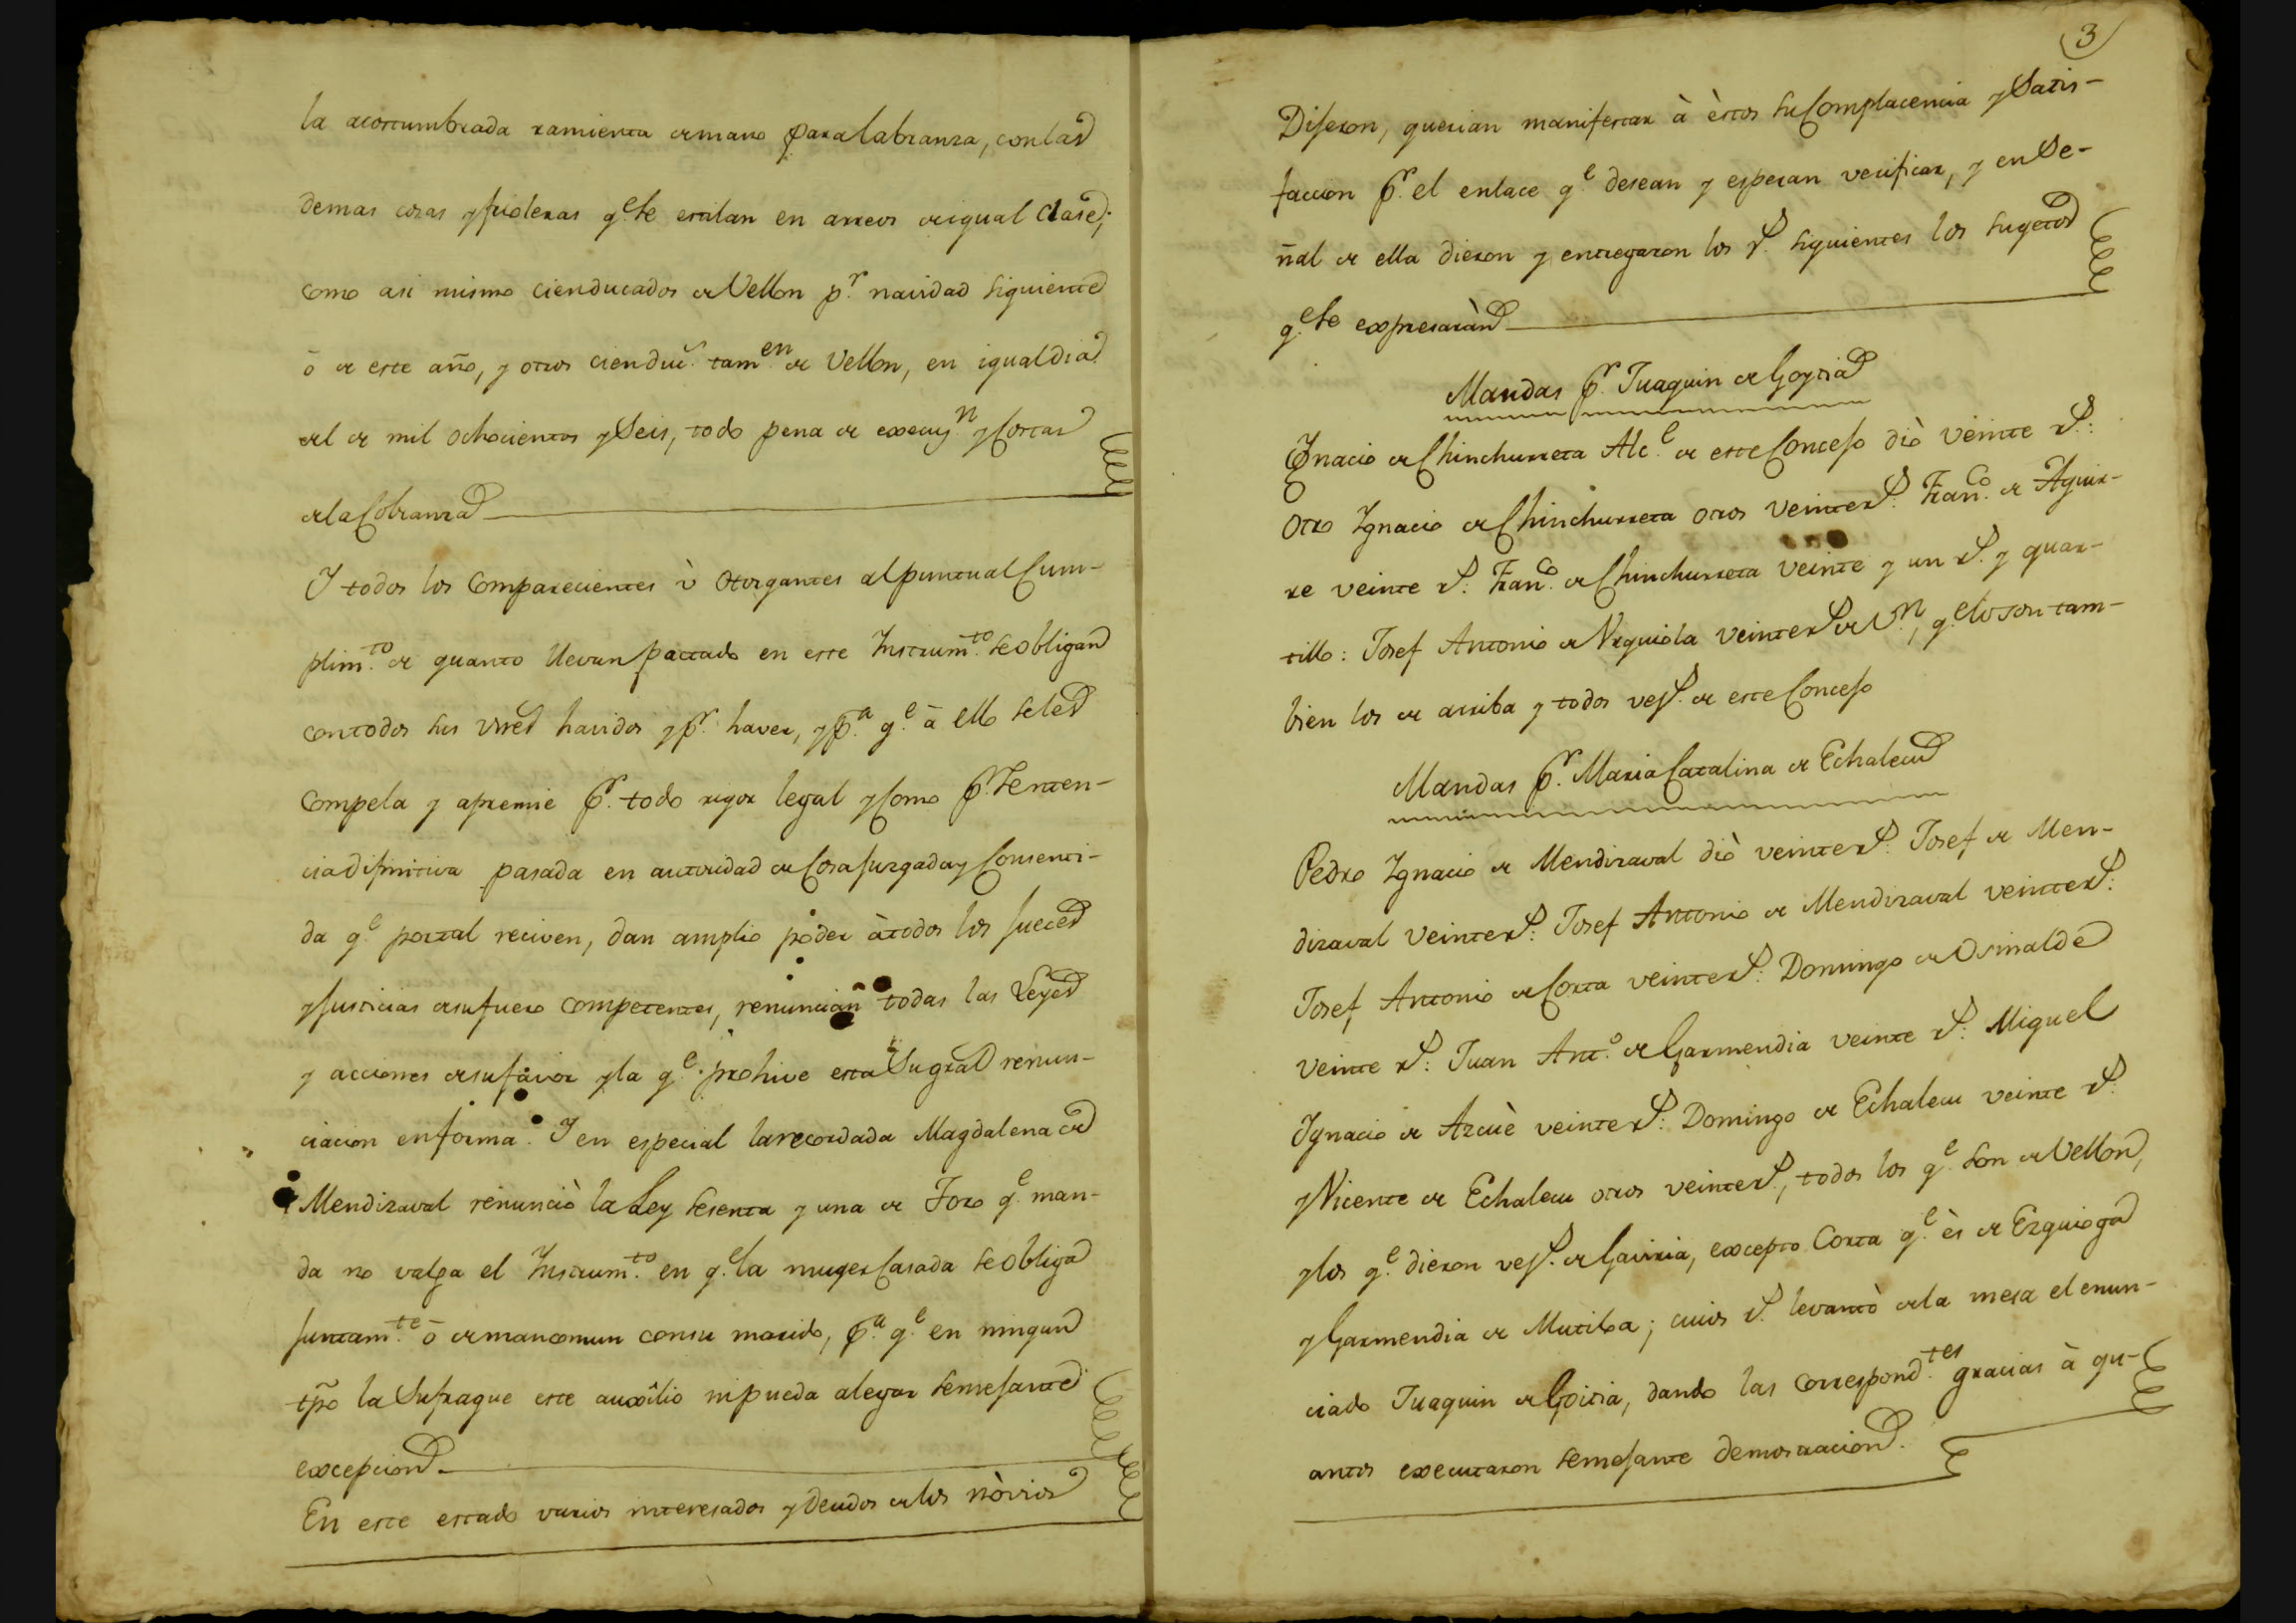 la acostumbrada ramienta de mano para labranza, con las
demas cosas y frioleras q.e se estilan en arreos de igual clase;
como asi mismo cien ducados de Vellon p.r navidad siguiente
ò de este año, y otros cien duc.s tam.en de Vellon, en igual dia
del de mil ochocientos y Seis, todo pena de execuz.n y Costas
de la Cobranza
I todos los Comparecientes ù Otorgantes al puntual Cum-
plim.to de quanto llevan pactado en este Instrum.to se obligan
con todos sus vnes havidos y p.r haver, y p.a q.e à ello se les
Compela y apremie p.r todo rigor legal y Como p.r Senten-
cia difinitiva pasada en autoridad de Cosa juzgada y Consenti-
da q.e por tal reciven, dan amplio poder à todos los jueces
y justicias de su fuero competentes, renuncian todas las Leyes
y acciones de su favor y la q.e prohive esta Su gral renun-
ciacion en forma. I en especial la recordada Magdalena de
Mendizaval renunciò la Ley sesenta y una de Toro q.e man-
da no valga el Instrum.to en q.e la muger Casada se obliga
juntam.te ò de mancomun con su marido, p.a q.e en ningun
tpõ la Sufrague este auxîlio ni pueda alegar semejante
excepcion.
En este estado varios interesados y Deudos de los nòvios
3
Dijeron, querian manifestar à èstos su Complacencia y Satis-
faccion p.r el enlace q.e desean y esperan verificar, y en Se-
ñal de ella dieron y entregaron los r.s siguientes los sugetos
q.e se expresaràn
Mandas p.r Juaquin de Goytia
Ignacio de Chinchurreta Alc.e de este Concejo diò veinte r.s:
Otro Ygnacio de Chinchurreta otros veinte r.s: Fran.co de Aguir-
re veinte r.s: Fran.co de Chinchurreta veinte y un r.s y quar-
tillo: Josef Antonio de Vrquiola veinte r.s de V.n, q.e lo son tam-
bien los de arriba y todos vez.s de este Concejo
Mandas p.r Maria Catalina de Echalecu
Pedro Ygnacio de Mendizaval diò veinte r.s: Josef de Men-
dizaval veinte r.s: Josef Antonio de Mendizaval veinte r.s:
Josef Antonio de Corta veinte r.s: Domingo de Osinalde
veinte r.s: Juan Ant.o de Garmendia veinte r.s: Miguel
Ygnacio de Azcuè veinte r.s: Domingo de Echalecu veinte r.s:
y Vicente de Echalecu otros veinte r.s, todos los q.e son de Vellon,
y los q.e dieron vez.s de Gaviria, excepto Corta q.e ès de Ezquioga
y Garmendia de Mutiloa; cuios r.s levantò de la mesa el enun-
ciado Juaquin de Goitia, dando las correspond.tes gracias à qu-
antos executaron semejante demostracion.